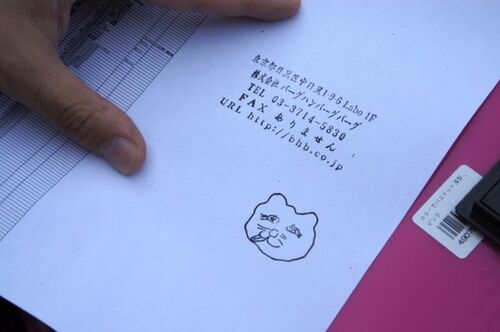 東京都目黒区中目黒1-9-6 Labo 1F
株式会社 バーグハンバーグバーグ
TEL 03-3714-5830
FAX ありません
URL http://bhb.co.jp
カラーでバスケット薄型
ピンク
490